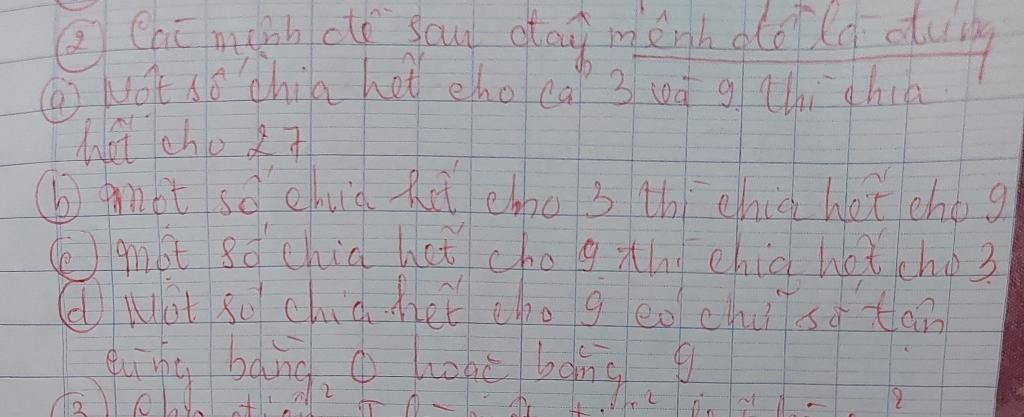 ② Các mệnh đề sau đây mệnh đề là đúng
ⓐ Một số chia hết cho cả 3 và 9 thì chia
hết cho 27
ⓑ một số chia hết cho 3 thì chia hết cho 9
ⓒ một số chia hết cho 9 thì chia hết cho 3
ⓓ Một số chia hết cho 9 có chữ số tận
cùng bằng 0 hoặc bằng 9
③